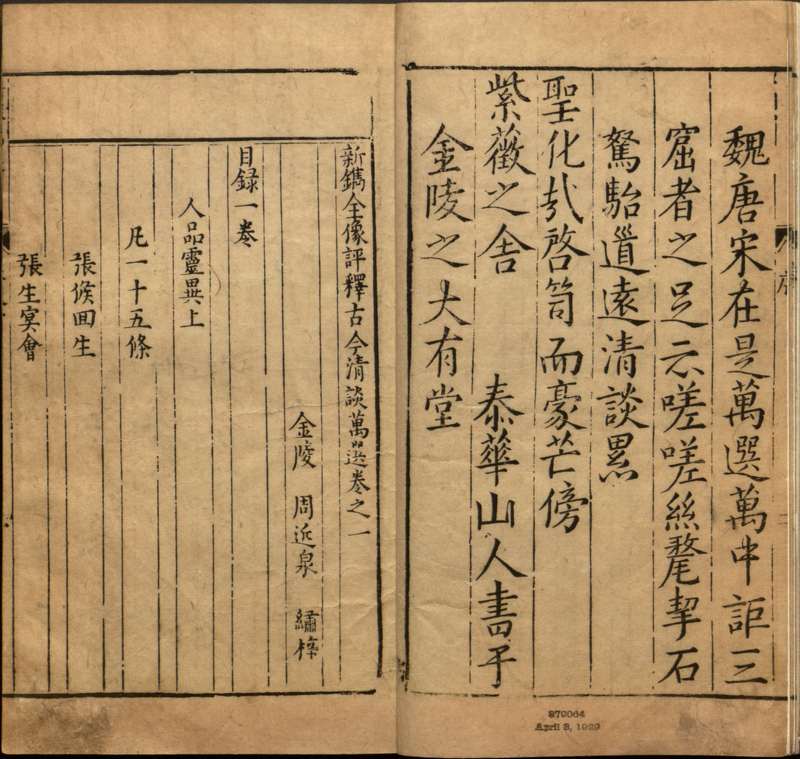 魏唐宋在是萬選萬中詎三
窟者之足云嗟嗟絲氂挈石
駑駘道遠清談累
聖化㢤啓笥而豪芒傍
紫薇之舍 泰華山人書于
金陵之大有堂
序
新鐫全像評釋古今清談萬選卷之一
金陵 周近泉 繡梓
目録一卷
人品靈異上
凡一十五條
張候回生
張生冥會
879064
April 3, 1929